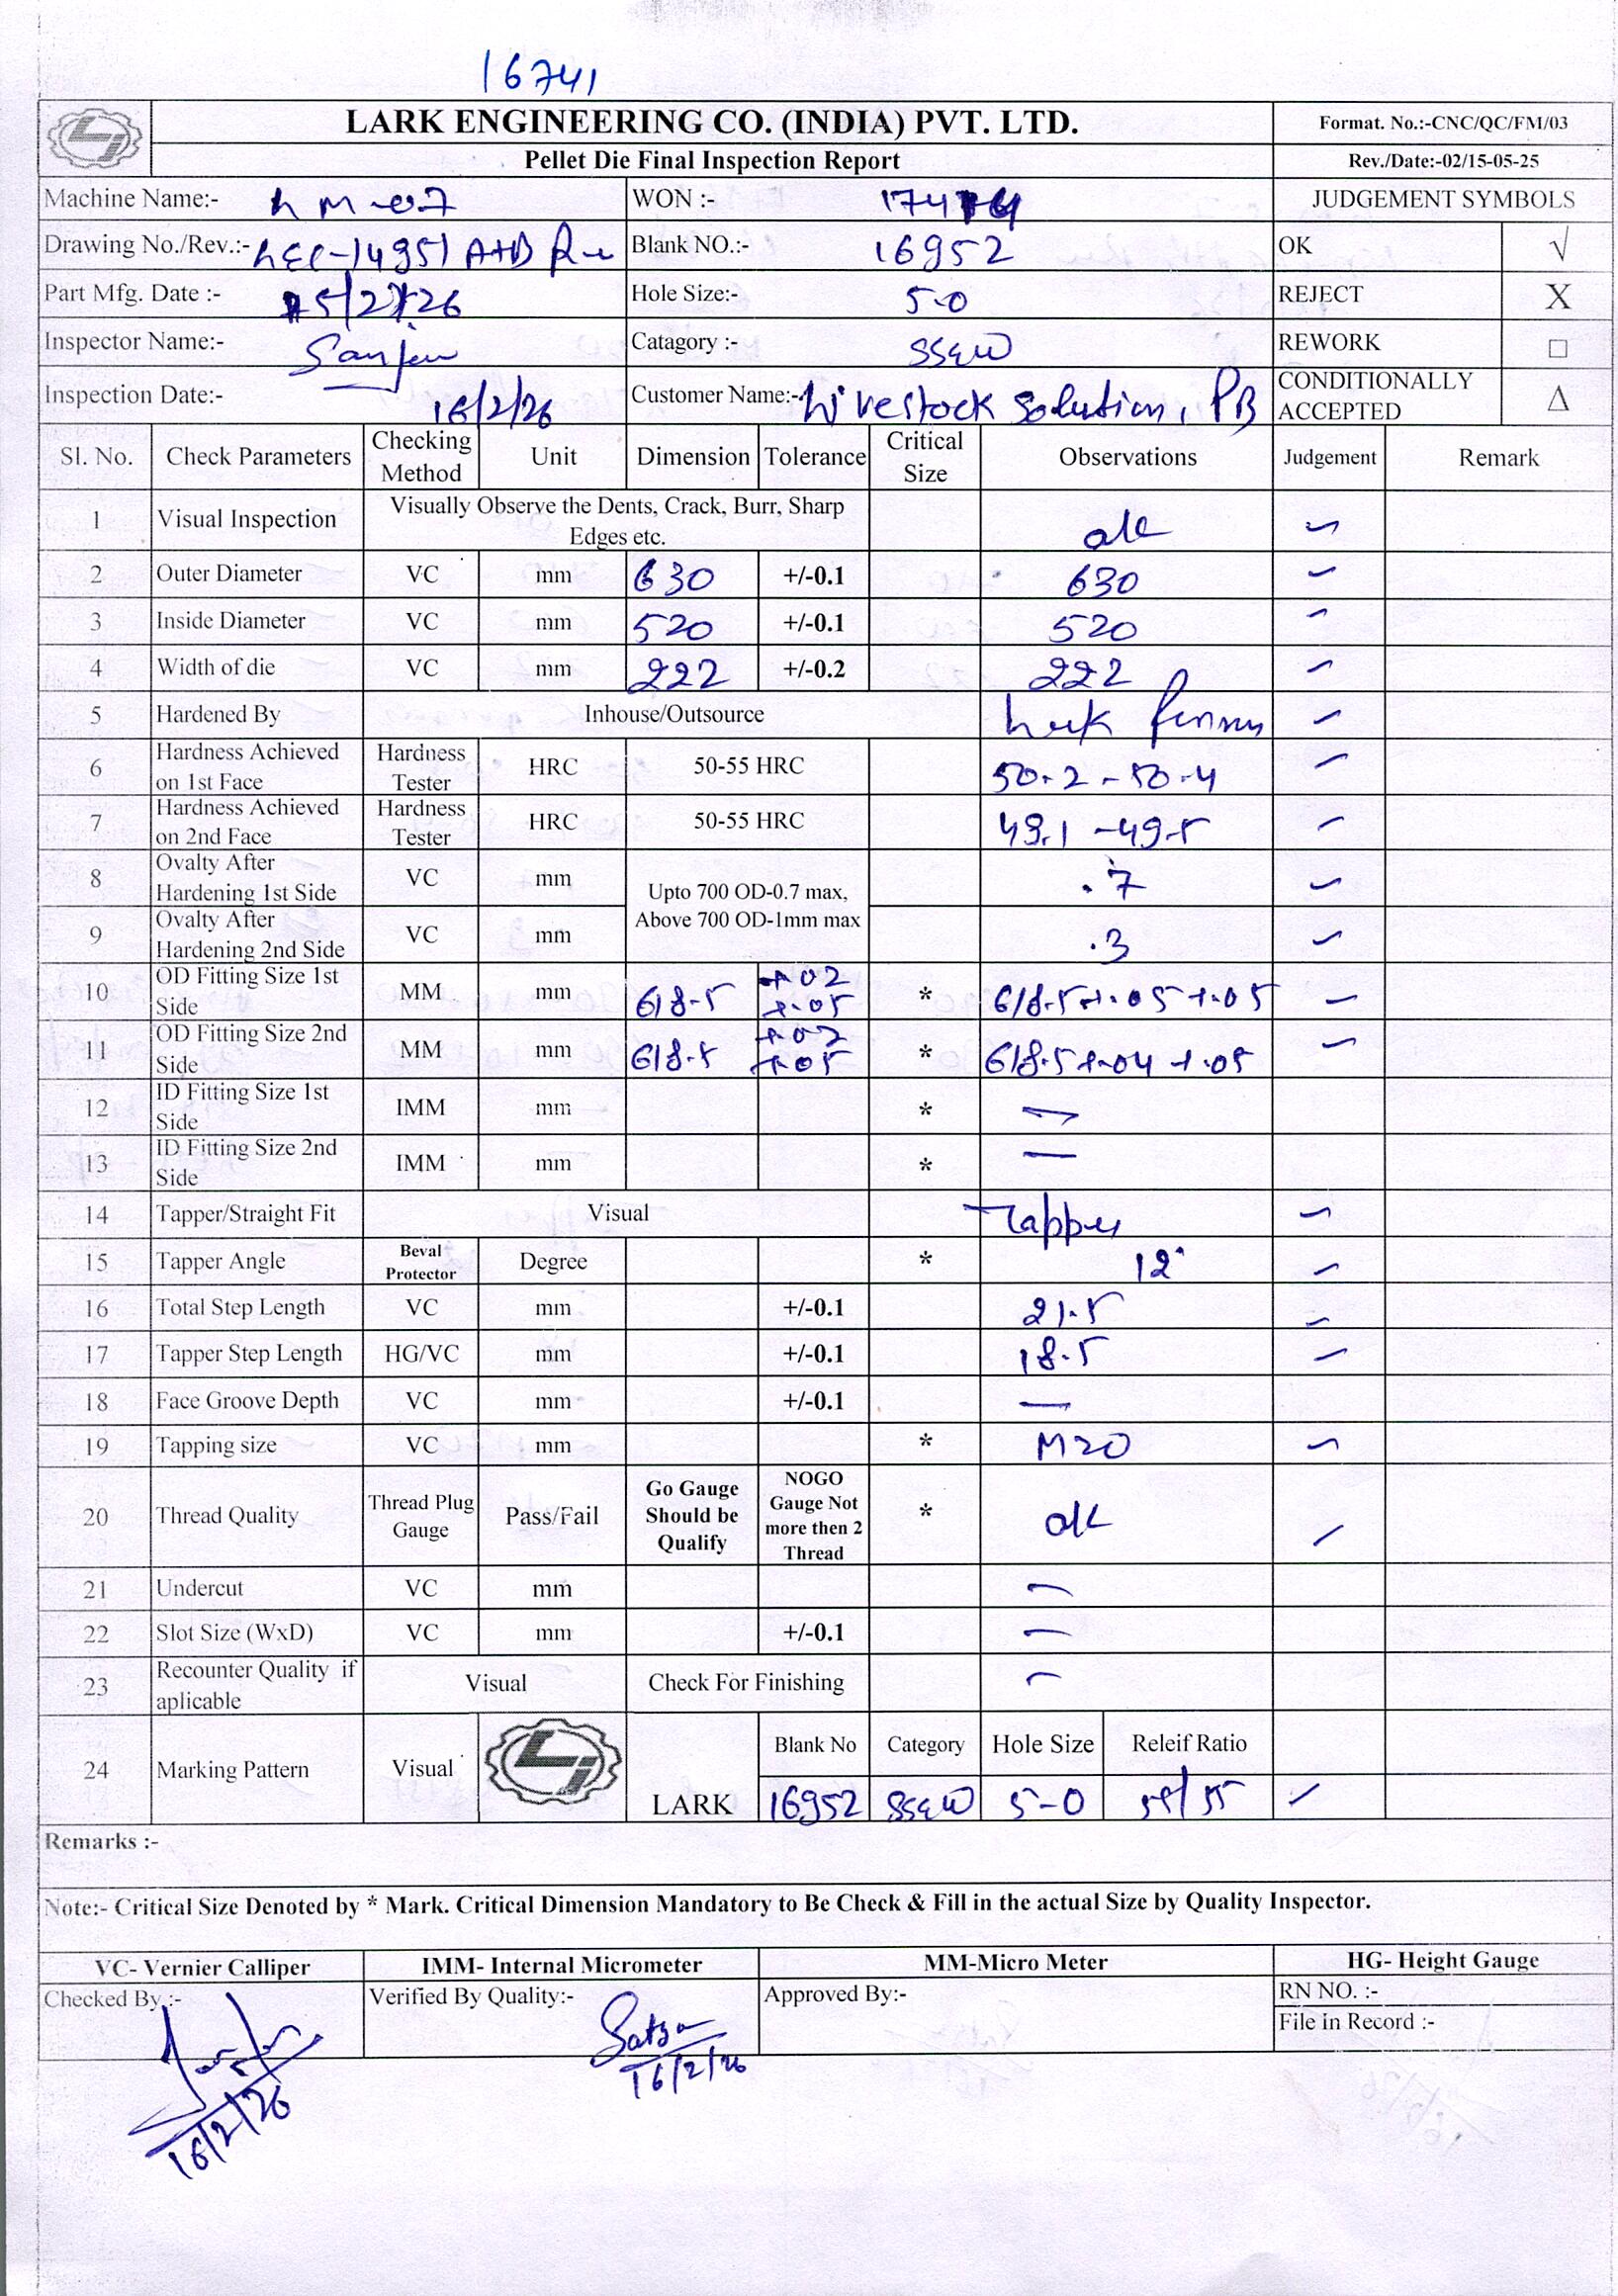 16741
LARK ENGINEERING CO. (INDIA) PVT. LTD.
Format. No.:-CNC/QC/FM/03
Pellet Die Final Inspection Report
Rev./Date:-02/15-05-25
Machine Name:- LM-07
WON :-
JUDGEMENT SYMBOLS
Drawing No./Rev.:- LEC-14951 A+B
Blank NO.:- 16952
OK √
Part Mfg. Date :-
Hole Size:- 5.0
REJECT X
Inspector Name:- Sanjeev
Catagory :- SS4W
REWORK □
Inspection Date:- 16/2/26
Customer Name:- Livestock Solution, PB
CONDITIONALLY ACCEPTED Δ
Sl. No. Check Parameters Checking Method Unit Dimension Tolerance Critical Size Observations Judgement Remark
1 Visual Inspection Visually Observe the Dents, Crack, Burr, Sharp Edges etc. ok
2 Outer Diameter VC mm 630 +/-0.1 630
3 Inside Diameter VC mm 520 +/-0.1 520
4 Width of die VC mm 222 +/-0.2 222
5 Hardened By Inhouse/Outsource
6 Hardness Achieved on 1st Face Hardness Tester HRC 50-55 HRC 50.2 - 50.4
7 Hardness Achieved on 2nd Face Hardness Tester HRC 50-55 HRC 49.1 - 49.5
8 Ovalty After Hardening 1st Side VC mm Upto 700 OD-0.7 max, Above 700 OD-1mm max .7
9 Ovalty After Hardening 2nd Side VC mm .3
10 OD Fitting Size 1st Side MM mm 618.5 +.02 +.05 * 618.5 +.05 +.05
11 OD Fitting Size 2nd Side MM mm 618.5 +.02 +.05 * 618.5 +.04 +.05
12 ID Fitting Size 1st Side IMM mm * —
13 ID Fitting Size 2nd Side IMM mm * —
14 Tapper/Straight Fit Visual Tapper
15 Tapper Angle Beval Protector Degree * 12°
16 Total Step Length VC mm +/-0.1 21.5
17 Tapper Step Length HG/VC mm +/-0.1 18.5
18 Face Groove Depth VC mm +/-0.1 —
19 Tapping size VC mm * M20
20 Thread Quality Thread Plug Gauge Pass/Fail Go Gauge Should be Qualify NOGO Gauge Not more then 2 Thread * ok
21 Undercut VC mm —
22 Slot Size (WxD) VC mm +/-0.1 —
23 Recounter Quality if aplicable Visual Check For Finishing —
24 Marking Pattern Visual LARK Blank No Category Hole Size Releif Ratio
16952 SS4W 5-0
Remarks :-
Note:- Critical Size Denoted by * Mark. Critical Dimension Mandatory to Be Check & Fill in the actual Size by Quality Inspector.
VC- Vernier Calliper IMM- Internal Micrometer MM-Micro Meter HG- Height Gauge
Checked By :- Verified By Quality:- Approved By:- RN NO. :-
File in Record :-
16/2/26
16/2/26